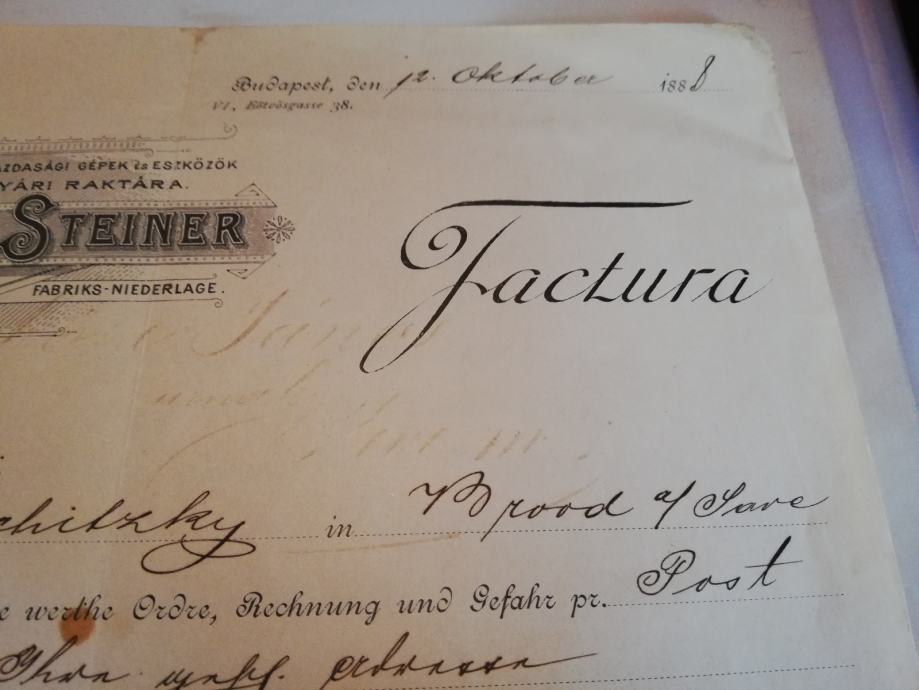 Budapest, den 12. Oktober 1888
VI., Eötvösgasse 38.
ZDASÁGI GÉPEK és ESZKÖZÖK
YÁRI RAKTÁRA.
STEINER
FABRIKS-NIEDERLAGE.
Factura
chitzky in Brood a/ Save
e werthe Ordre, Rechnung und Gefahr pr. Post
Ihre gesch. Adresse